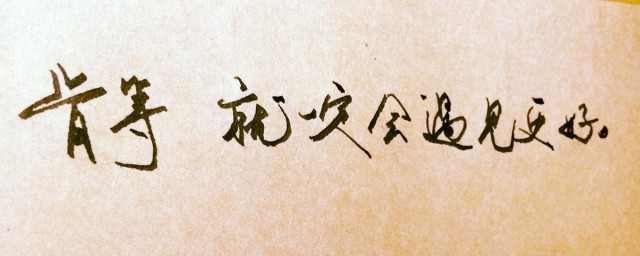 肯等 就一定会遇见更好。